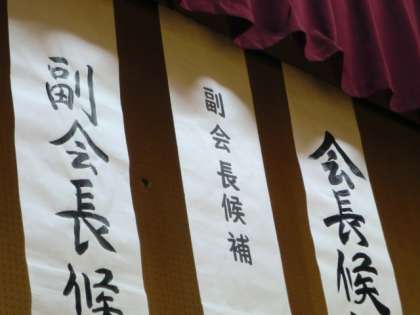 会長候
副会長候補
副会長候